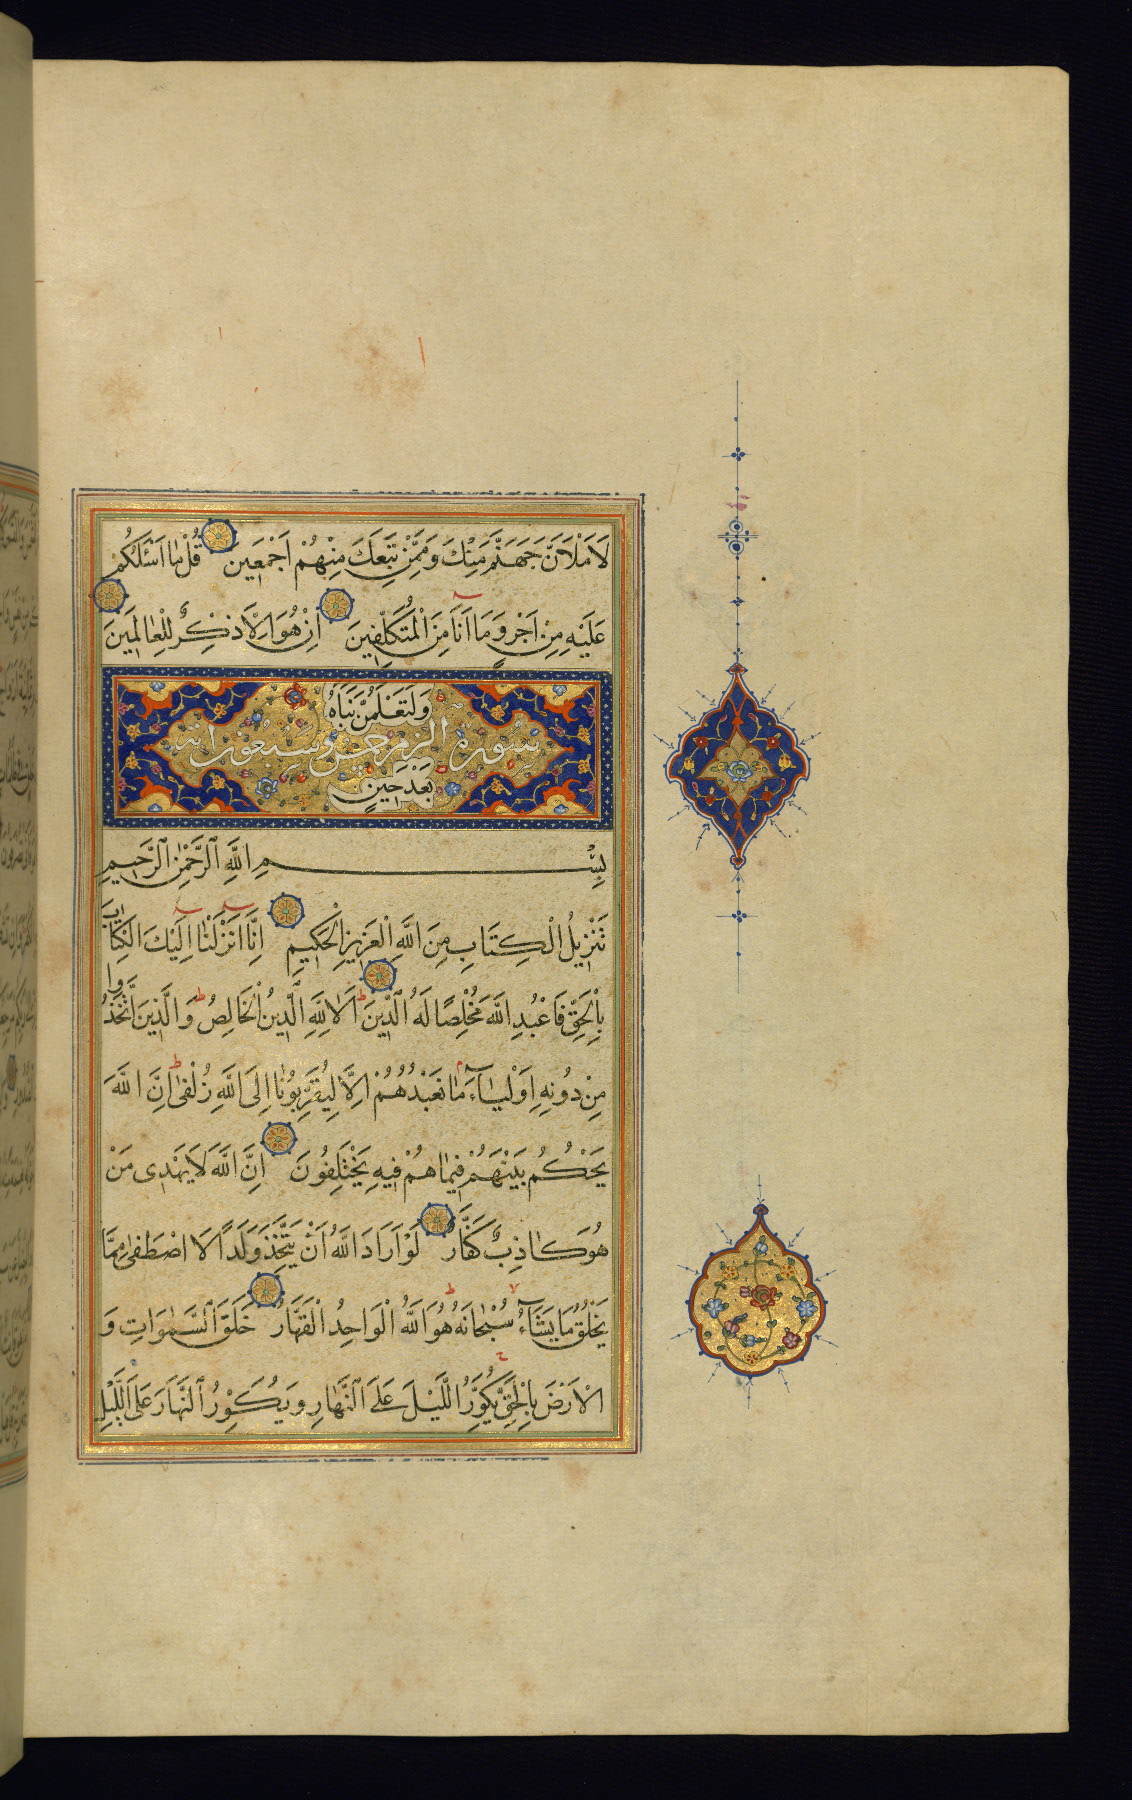 لَاَمْلَاَنَّ جَهَنَّمَ مِنْكَ وَمِمَّنْ تَبِعَكَ مِنْهُمْ اَجْمَعِينَ قُلْ مٰا اَسْئَلُكُمْ
عَلَيْهِ مِنْ اَجْرٍ وَمَا اَنَا مِنَ الْمُتَكَلِّفِينَ اِنْ هُوَ اِلَّا ذِكْرٌ لِلْعٰالَمِينَ
وَلَتَعْلَمُنَّ نَبَاَهُ
سورة الزمر خمس وسبعون آية
بَعْدَ حِينٍ
بِسْمِ اللَّهِ الرَّحْمٰنِ الرَّحِيمِ
تَنْزِيلُ الْكِتَابِ مِنَ اللَّهِ الْعَزِيزِ الْحَكِيمِ اِنَّا اَنْزَلْنٰا اِلَيْكَ الْكِتَابَ
بِالْحَقِّ فَاعْبُدِ اللَّهَ مُخْلِصًا لَهُ الدِّينَ اَلَا لِلَّهِ الدِّينُ الْخَالِصُ وَالَّذِينَ اتَّخَذُوا
مِنْ دُونِهِ اَوْلِيٰاءَ مٰا نَعْبُدُهُمْ اِلَّا لِيُقَرِّبُونٰا اِلَى اللَّهِ زُلْفٰى اِنَّ اللَّهَ
يَحْكُمُ بَيْنَهُمْ فِيمٰا هُمْ فِيهِ يَخْتَلِفُونَ اِنَّ اللَّهَ لَا يَهْدِى مَنْ
هُوَ كٰاذِبٌ كَفَّارٌ لَوْ اَرَادَ اللَّهُ اَنْ يَتَّخِذَ وَلَدًا لَا اصْطَفٰى مِمَّا
يَخْلُقُ مَا يَشَاءُ سُبْحٰانَهُ هُوَ اللَّهُ الْوَاحِدُ الْقَهَّارُ خَلَقَ السَّمٰوَاتِ وَ
الْاَرْضَ بِالْحَقِّ يُكَوِّرُ اللَّيْلَ عَلَى النَّهٰارِ وَيُكَوِّرُ النَّهَارَ عَلَى اللَّيْلِ